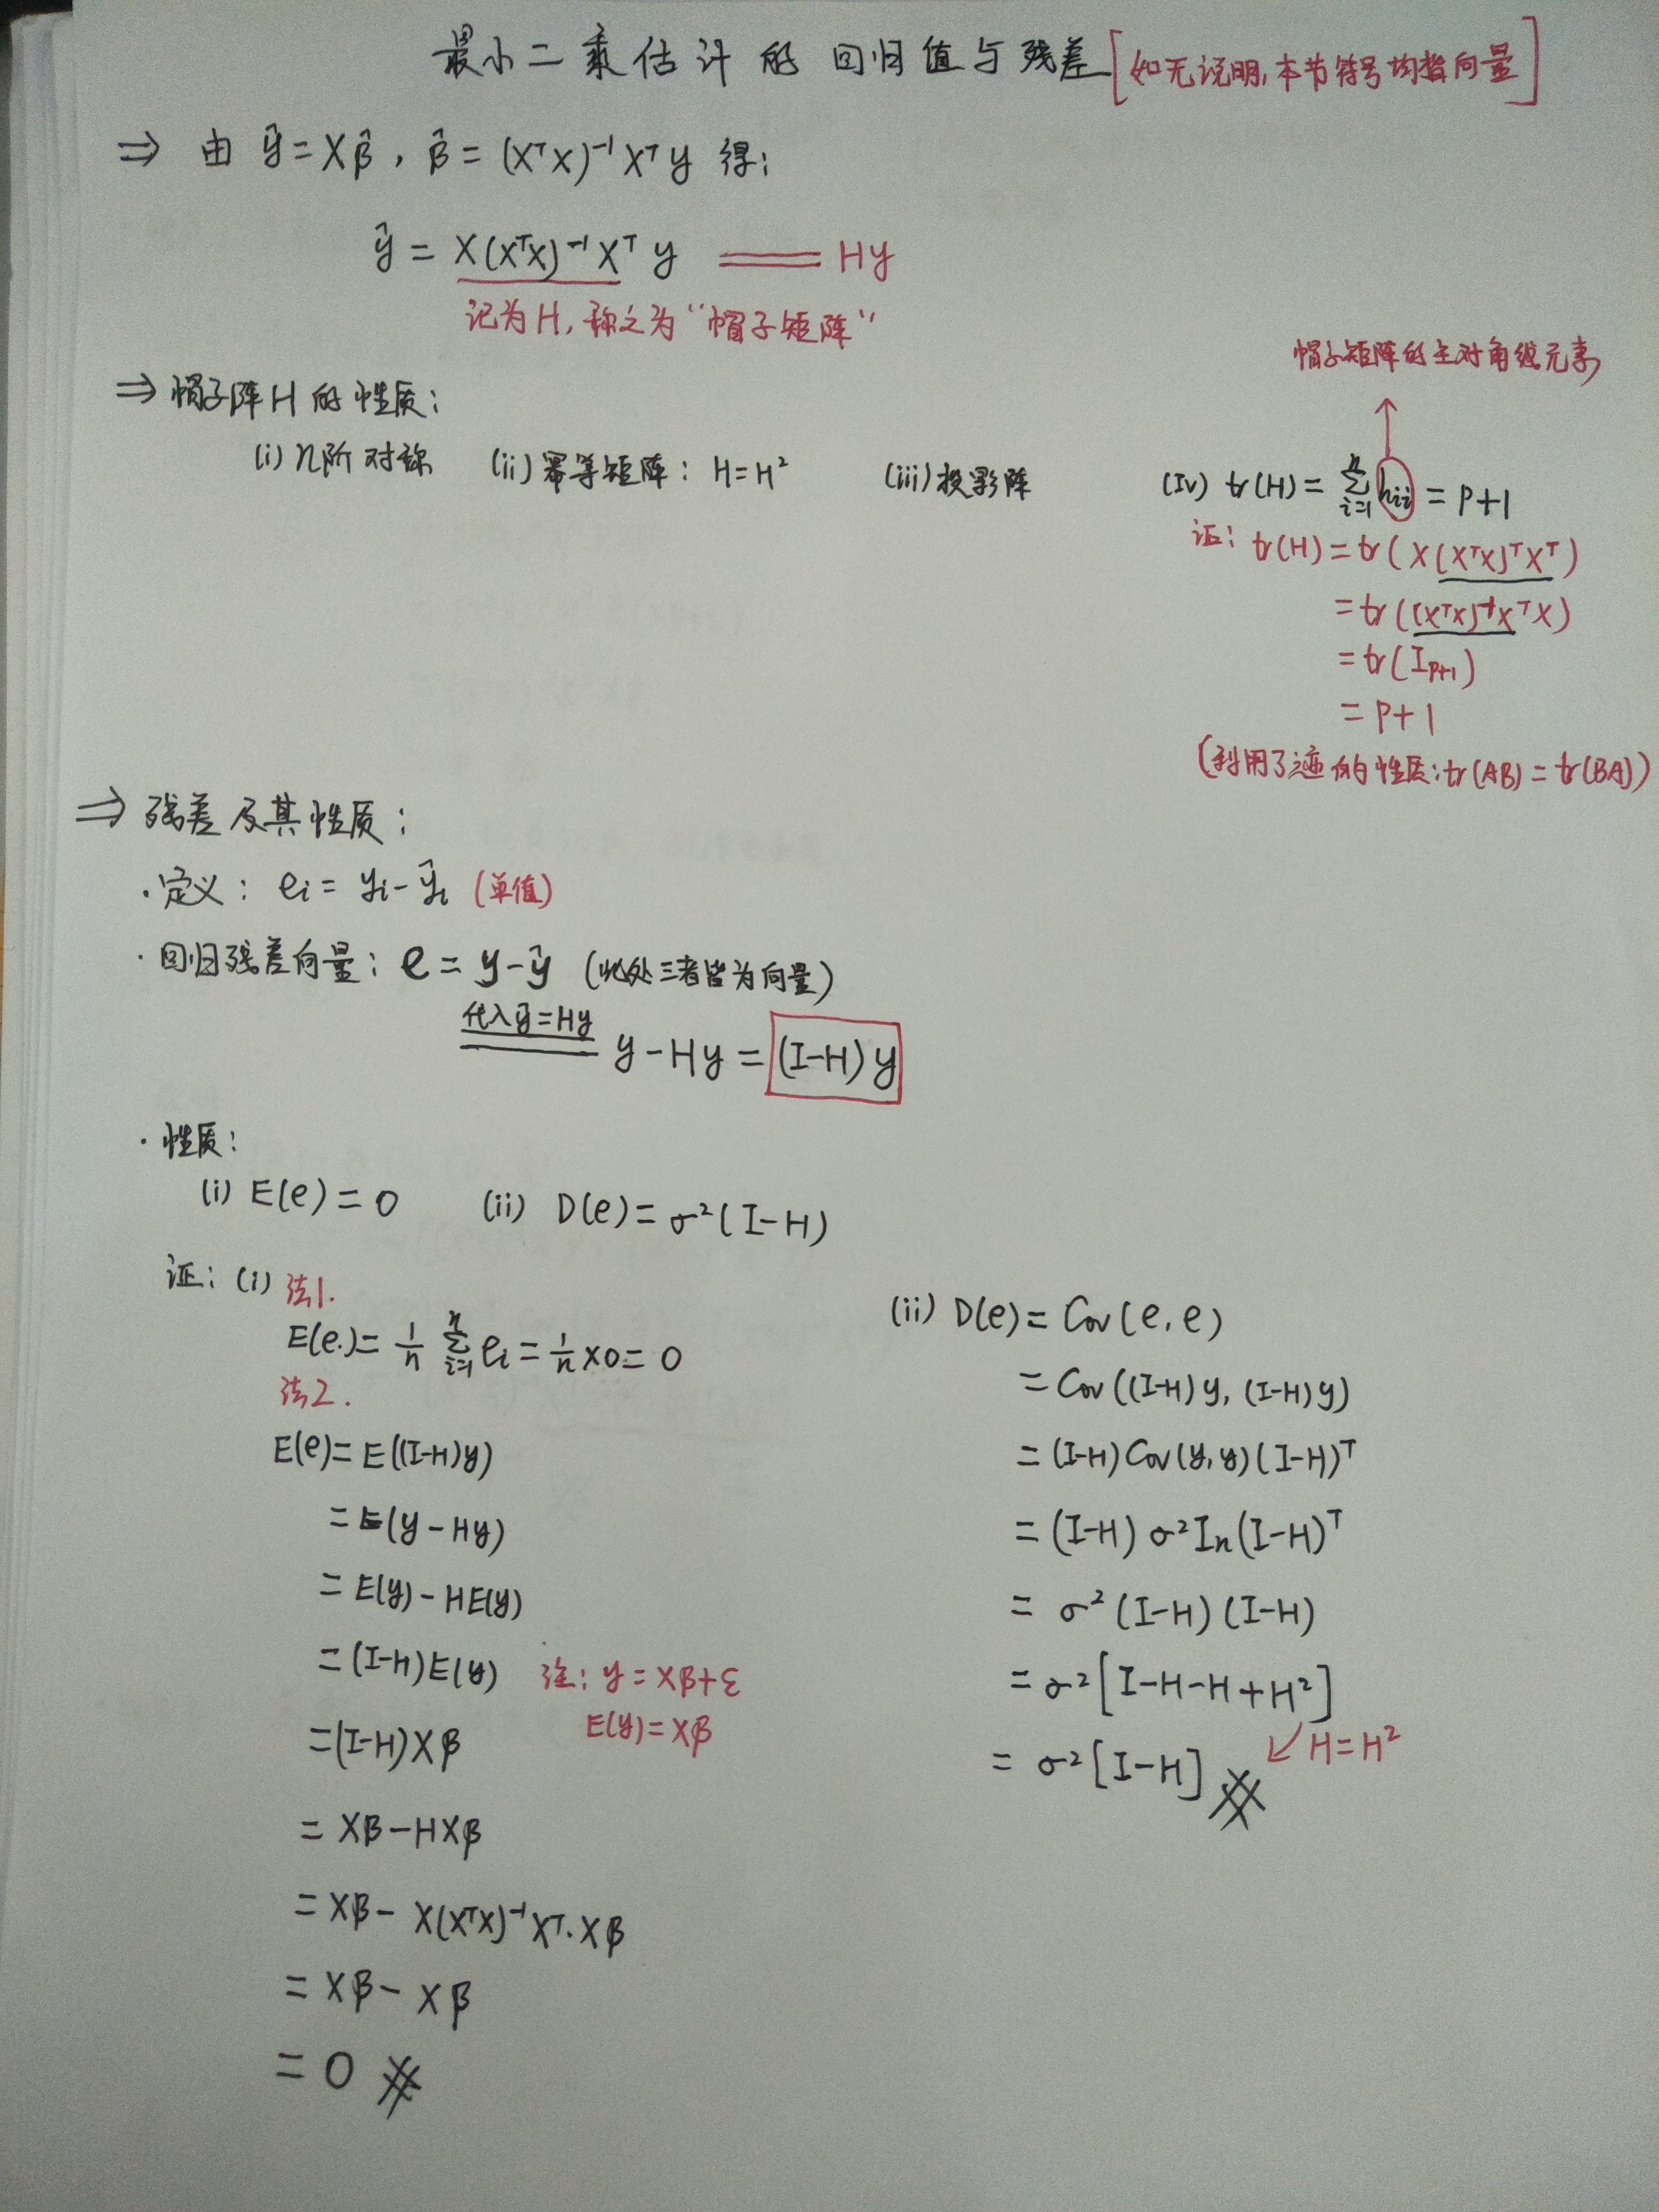 最小二乘估计的回归值与残差[如无说明,本节符号均指向量]
⇒ 由 ŷ=Xβ̂, β̂=(XᵀX)⁻¹Xᵀy 得:
ŷ = X(XᵀX)⁻¹Xᵀ y ══ Hy
记为H, 称之为“帽子矩阵”
帽子矩阵的主对角线元素
⇒ 帽子阵H的性质:
(i) n阶对称 (ii) 幂等矩阵: H=H² (iii) 投影阵 (iv) tr(H)=∑ⁿᵢ₌₁ hᵢᵢ = p+1
证: tr(H)=tr(X(XᵀX)ᵀXᵀ)
=tr((XᵀX)⁻¹XᵀX)
=tr(Iₚ₊₁)
= p+1
(利用了迹的性质: tr(AB)=tr(BA))
⇒ 残差及其性质:
·定义: eᵢ= yᵢ-ŷᵢ (单值)
·回归残差向量: e = y-ŷ (此处三者皆为向量)
代入ŷ=Hy
══ y-Hy = (I-H)y
·性质:
(i) E(e)=0 (ii) D(e)=σ²(I-H)
证: (i) 法1.
E(e)= 1/n ∑ⁿᵢ₌₁ eᵢ= 1/n ×0= 0
法2.
E(e)=E((I-H)y)
=E(y-Hy)
=E(y)-HE(y)
=(I-H)E(y) 注: y=Xβ+ε
E(y)=Xβ
=(I-H)Xβ
= Xβ-HXβ
= Xβ- X(XᵀX)⁻¹Xᵀ·Xβ
= Xβ- Xβ
= 0 #
(ii) D(e)= Cov(e,e)
= Cov((I-H)y, (I-H)y)
= (I-H)Cov(y,y)(I-H)ᵀ
= (I-H) σ²Iₙ(I-H)ᵀ
= σ²(I-H)(I-H)
= σ²[I-H-H+H²]
↙ H=H²
= σ²[I-H] #